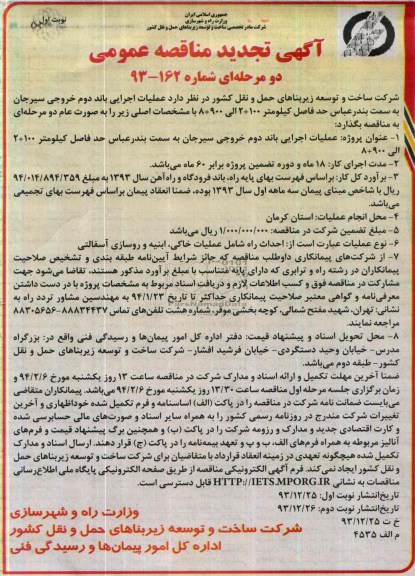 جمهوری اسلامی ایران
وزارت راه و شهرسازی
شرکت مادر تخصصی ساخت و توسعه زیربناهای حمل و نقل کشور
نوبت اول
آگهی تجدید مناقصه عمومی
دو مرحله‌ای شماره ۱۶۲-۹۳
شرکت ساخت و توسعه زیربناهای حمل و نقل کشور در نظر دارد عملیات اجرایی باند دوم خروجی سیرجان
به سمت بندرعباس حد فاصل کیلومتر ۱۰۰+۲ الی ۹۰۰+۸ با مشخصات اصلی زیر را به صورت عام دو مرحله‌ای
به مناقصه بگذارد:
۱- عنوان پروژه: عملیات اجرایی باند دوم خروجی سیرجان به سمت بندرعباس حد فاصل کیلومتر ۱۰۰+۲
الی ۹۰۰+۸
۲- مدت اجرای کار: ۱۸ ماه و دوره تضمین پروژه برابر ۶۰ ماه می‌باشد.
۳- برآورد کل کار: براساس فهرست بهای پایه راه، باند فرودگاه و راه‌آهن سال ۱۳۹۳ به مبلغ ۹۴/۰۱۴/۸۹۴/۳۵۹
ریال با شاخص مبنای پیمان سه ماهه اول سال ۱۳۹۳ بوده، ضمنا انعقاد پیمان براساس فهرست بهای تجمیعی
می‌باشد.
۴- محل انجام عملیات: استان کرمان
۵- مبلغ تضمین شرکت در مناقصه: ۱/۰۰۰/۰۰۰/۰۰۰ ریال می‌باشد
۶- نوع عملیات عبارت است از: احداث راه شامل عملیات خاکی، ابنیه و روسازی آسفالتی
۷- از شرکت‌های پیمانکاری داوطلب مناقصه که حائز شرایط آیین‌نامه طبقه بندی و تشخیص صلاحیت
پیمانکاران در رشته راه و ترابری که دارای پایه متناسب با مبلغ برآورد مذکور هستند، تقاضا می‌شود جهت
مشارکت در مناقصه فوق و کسب اطلاعات لازم و دریافت اسناد مربوط به مشخصات پروژه با در دست داشتن
معرفی‌نامه و گواهی معتبر صلاحیت پیمانکاری حداکثر تا تاریخ ۹۴/۱/۲۳ به مهندسین مشاور تردد راه به
نشانی: تهران، شهید مفتح شمالی، کوچه بخشی موقر، شماره هشت تلفن‌های تماس ۸۸۸۳۴۴۳۷-۸۸۳۰۵۶۵۶
مراجعه نمایند.
۸- محل تحویل اسناد و پیشنهاد قیمت: دفتر اداره کل امور پیمان‌ها و رسیدگی فنی واقع در: بزرگراه
مدرس- خیابان وحید دستگردی- خیابان فرشید افشار- شرکت ساخت و توسعه زیربناهای حمل و نقل
کشور- طبقه دوم می‌باشد.
ضمنا آخرین مهلت تکمیل و ارائه اسناد و مدارک شرکت در مناقصه ساعت ۱۳ روز یکشنبه مورخ ۹۴/۲/۶ و
زمان برگزاری جلسه مرحله اول مناقصه ساعت ۱۳/۳۰ روز یکشنبه مورخ ۹۴/۲/۶ می‌باشد. پیمانکاران متقاضی
می‌بایست ضمانت نامه شرکت در مناقصه را در پاکت (الف) اساسنامه و فرم تکمیل شده خوداظهاری و آخرین
تغییرات شرکت مندرج در روزنامه رسمی کشور را به همراه سایر اسناد و صورت‌های مالی حسابرسی شده
و کارت اقتصادی جدید و مدارک و رزومه شرکت را در پاکت (ب) و همچنین برگ پیشنهاد قیمت و فرم‌های
آنالیز مربوطه به همراه فرم‌های الف، ب و پ و تعهد بیمه‌نامه را در پاکت (ج) قرار دهند. ارسال اسناد و مدارک
تکمیل شده هیچگونه تعهدی در زمینه انعقاد قرارداد با متقاضیان برای شرکت ساخت و توسعه زیربناهای حمل
و نقل کشور ایجاد نمی کند. فرم آگهی الکترونیکی مناقصه از طریق صفحه الکترونیکی پایگاه ملی اطلاع‌رسانی
مناقصات به نشانی HTTP://IETS.MPORG.IR قابل دسترسی است.
تاریخ انتشار نوبت اول: ۹۳/۱۲/۲۵
تاریخ انتشار نوبت دوم: ۹۳/۱۲/۲۶
خ ت ۹۳/۱۲/۲۵
م الف ۴۵۳۵
وزارت راه و شهرسازی
شرکت ساخت و توسعه زیربناهای حمل و نقل کشور
اداره کل امور پیمان‌ها و رسیدگی فنی